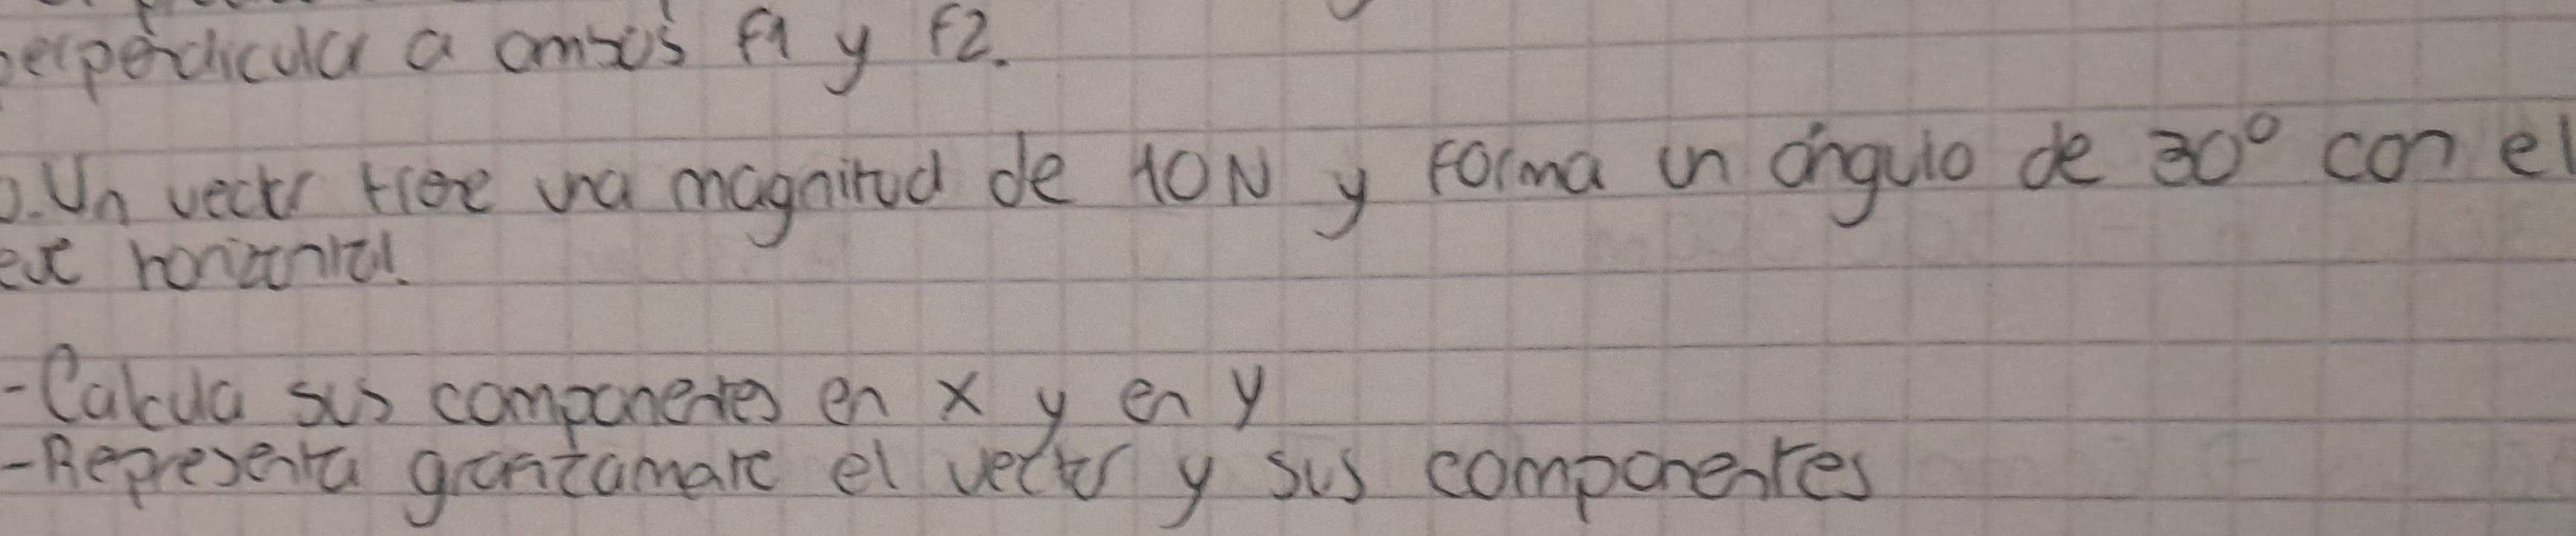 perpendicular a ambos F1 y F2.
Un vector tiene una magnitud de 10N y forma un ángulo de 30° con el
eje horizontal.
-Calcula sus componentes en x y en y
-Representa graficamente el vector y sus componentes